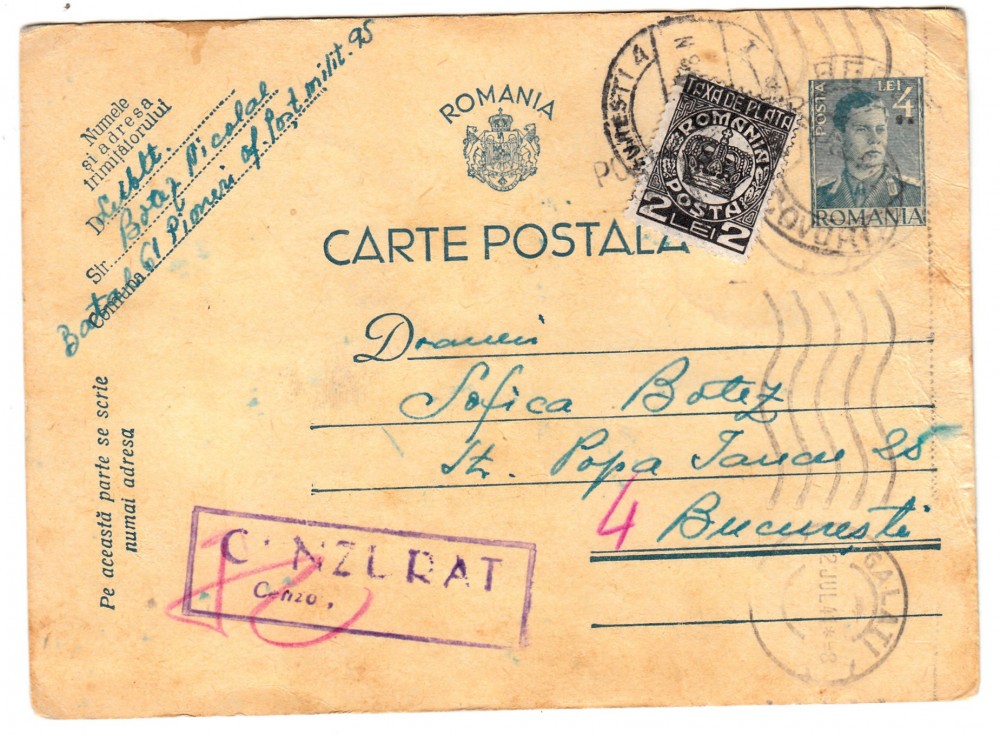 Numele
și adresa
trimițătorului
D. Sublt.
Botez Nicolae
Str.
Comuna
Batal 61 Pionieri of. Post milit. 95
ROMANIA
CARTE POSTALA
TAXA DE PLATA
ROMANIA
POSTA
2 LEI 2
POSTA LEI 4
ROMANIA
BUCUREȘTI 4
Sofica Botez
Str. Popa Iancu 25
4 București
Pe această parte se scrie
numai adresa
CENZURAT
GALAȚI